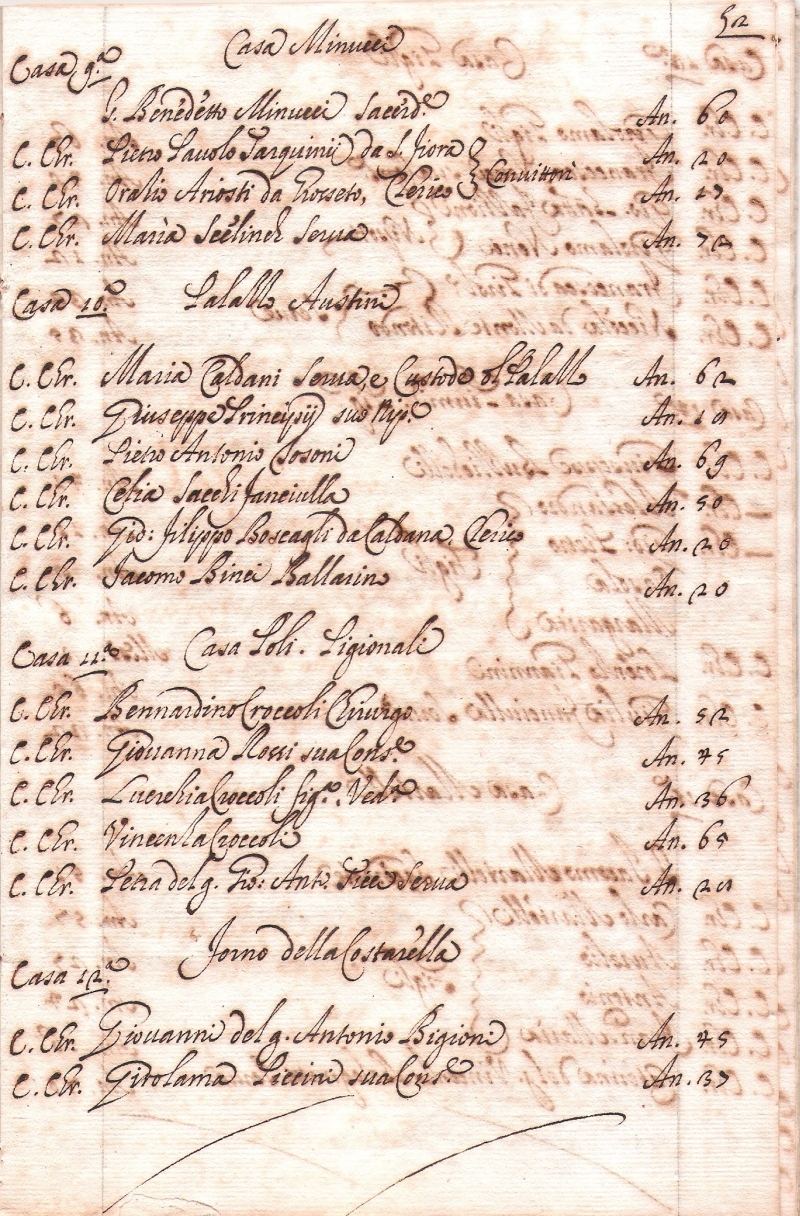 52
Casa 9.ª Casa Minucci
S. Benedetto Minucci Sacerd.e An. 60
C. Chr. Pietro Pauolo Tarquinij da S. Fiora An. 20
Convittori
C. Chr. Oratio Ariosti da Grosseto, Clerico An. 17
C. Chr. Maria Serua An. 72
Casa 10.ª Palazzo Austini
C. Chr. Maria Caldani Serua, e Custode del Palazzo An. 62
C. Chr. Giuseppe Principij suo Nip.e An. 19
C. Chr. Pietro Antonio Sosoni An. 69
C. Chr. Celia Sacchi fanciulla An. 50
C. Chr. Gio: Filippo Boscagli da Caldana, Clerico An. 20
C. Chr. Jacomo Binci Ballarino An. 20
Casa 11.ª Casa Poli. Pigionali
C. Chr. Bernardino Croccoli Chirurgo An. 52
C. Chr. Giovanna Rossi sua Cons.e An. 45
C. Chr. Lucrelia Croccoli fig.a, Ved.a An. 36
C. Chr. Vincenza Croccoli An. 65
C. Chr. Petra del q. Gio: Ant.o Serua An. 29
Casa 12.ª Forno della Costarella
C. Chr. Giovanni del q. Antonio Bigioni An. 45
C. Chr. Girolama Piccini sua Cons.e An. 37